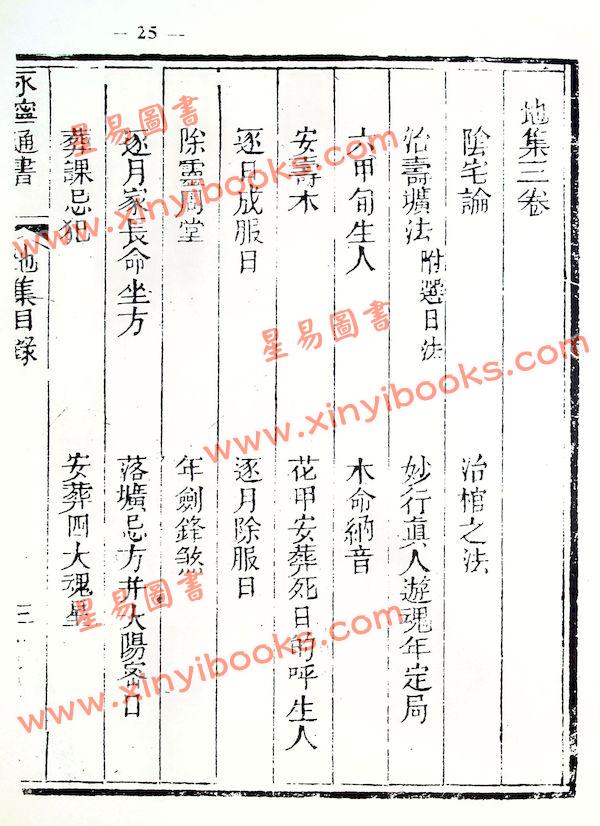 — 25 —
地集三卷
陰宅論
治棺之法
治壽壙法 附選日法
妙行眞人遊魂年定局
六甲旬生人
本命納音
安壽木
花甲安葬死日的呼生人
逐日成服日
逐月除服日
除靈周堂
年劍鋒煞
逐月家長命坐方
落壙忌方并太陽密日
葬課忌犯
安葬四大魂星
永寧通書
地集目錄
三
星易圖書
www.xinyibooks.com
星易圖書
www.xinyibooks.com
星易圖書
www.xinyibooks.com